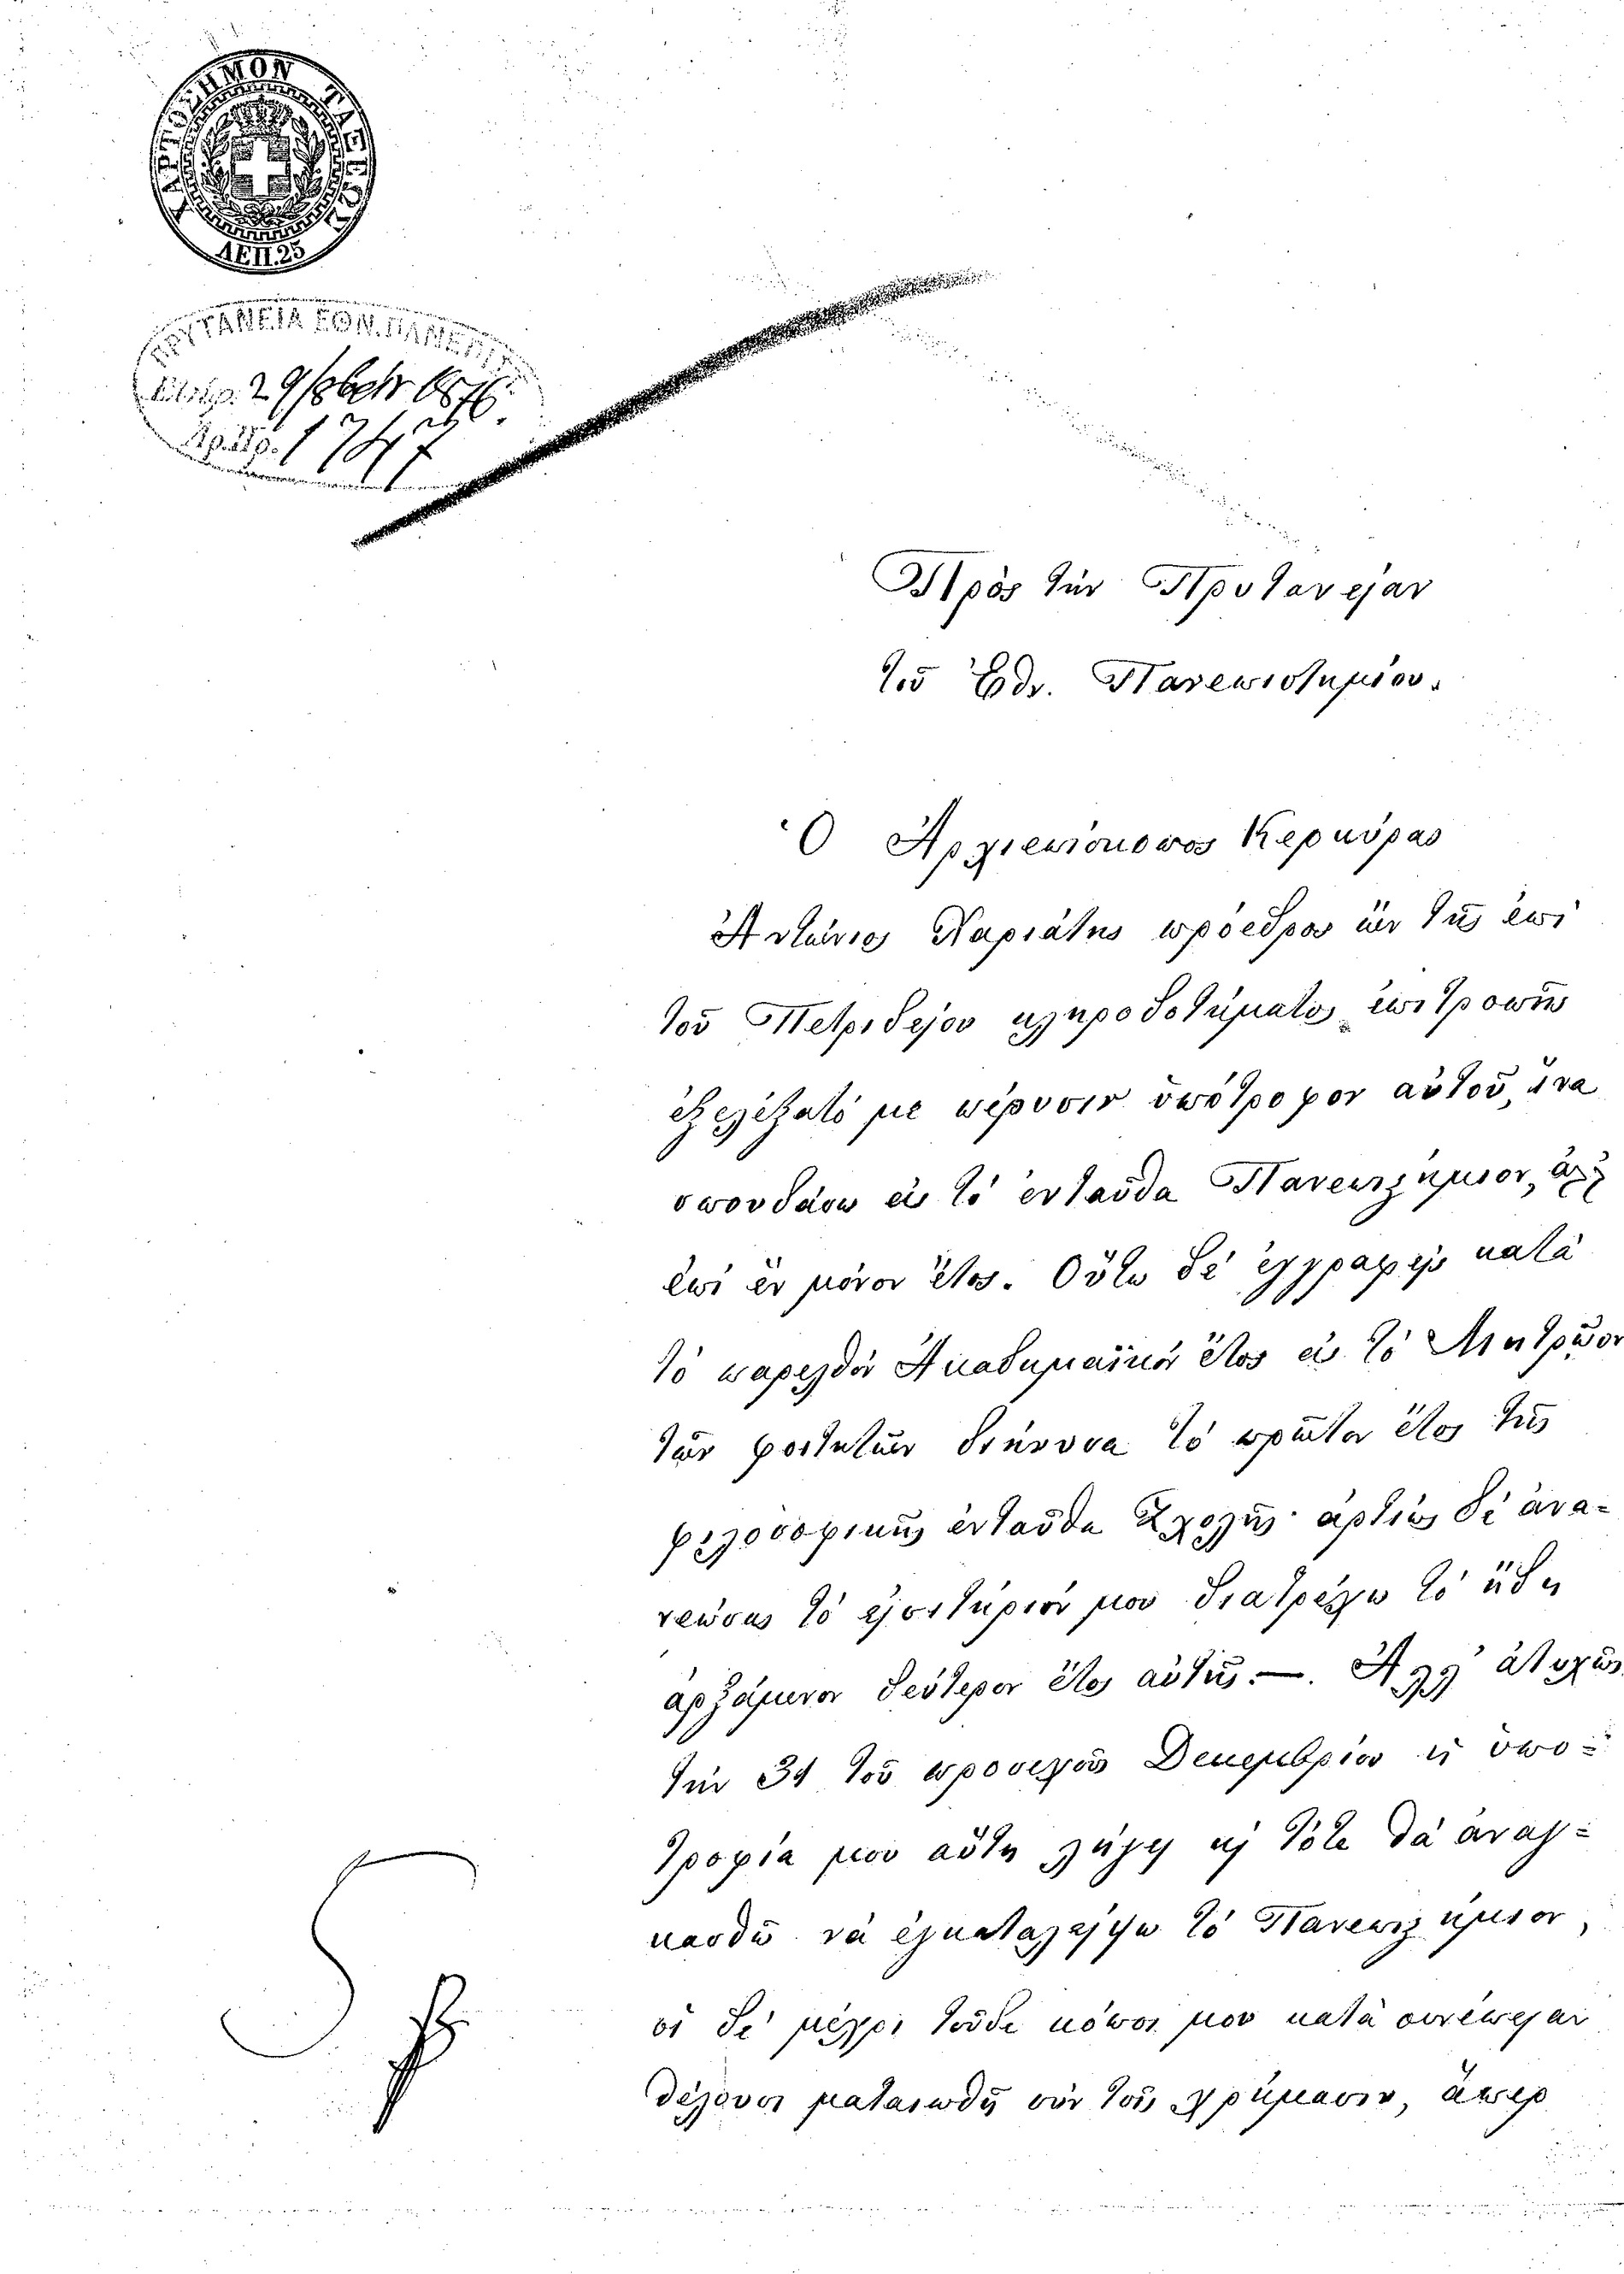 ΧΑΡΤΟΣΗΜΟΝ ΤΑΞΕΩΣ
ΛΕΠ.25
ΠΡΥΤΑΝΕΙΑ ΕΘΝ.ΠΑΝΕΠΙΣ
29/8βρ 1876
Αρ.Πρ. 1747
Πρὸς τὴν Πρυτανείαν
τοῦ Ἐθν. Πανεπιστημίου.
Ὁ Ἀρχιεπίσκοπος Κερκύρας
Ἀντώνιος Χαριάτης πρόεδρος ὢν τῆς ἐπὶ
τοῦ Πετριδείου κληροδοτήματος ἐπιτροπῆς
ἐξελέξατό με πέρυσιν ὑπότροφον αὐτοῦ, ἵνα
σπουδάσω εἰς τὸ ἐνταῦθα Πανεπιστήμιον, ἀλλ'
ἐπὶ ἓν μόνον ἔτος. Οὕτω δὲ ἐγγραφεὶς κατὰ
τὸ παρελθὸν Ἀκαδημαϊκὸν ἔτος εἰς τὸ Μητρῷον
τῶν φοιτητῶν διήνυσα τὸ πρῶτον ἔτος τῆς
φιλοσοφικῆς ἐνταῦθα Σχολῆς· ἀρτίως δὲ ἀνα-
νεώσας τὸ εἰσιτήριόν μου διατρέχω τὸ ἤδη
ἀρξάμενον δεύτερον ἔτος αὐτῆς.—. Ἀλλ' ἀτυχῶς
τὴν 31 τοῦ προσεχοῦς Δεκεμβρίου ἡ ὑπο-
τροφία μου αὕτη λήγει κ τότε θὰ ἀναγ-
κασθῶ νὰ ἐγκαταλείψω τὸ Πανεπιστήμιον,
οἱ δὲ μέχρι τοῦδε κόποι μου κατὰ συνέπειαν
θέλουσι ματαιωθῆ σὺν τοῖς χρήμασιν, ἅπερ